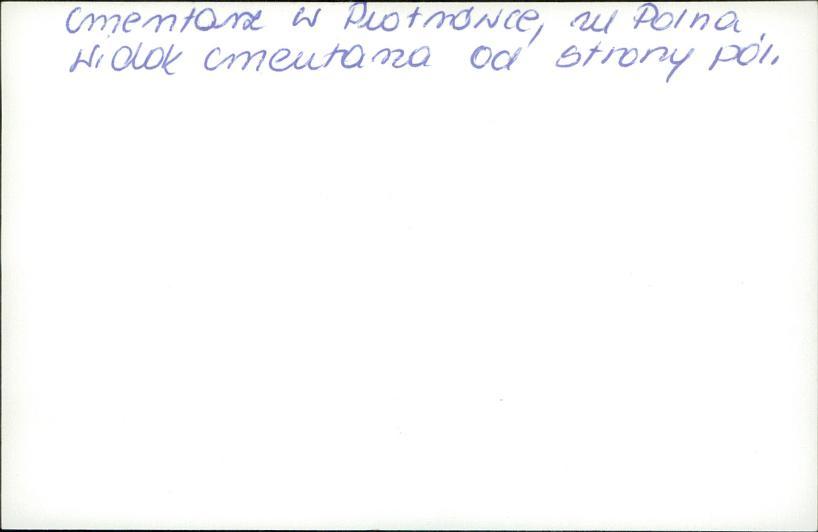 Cmentarz w Piotrówce, ul Polna.
Widok cmentarza od strony pól.